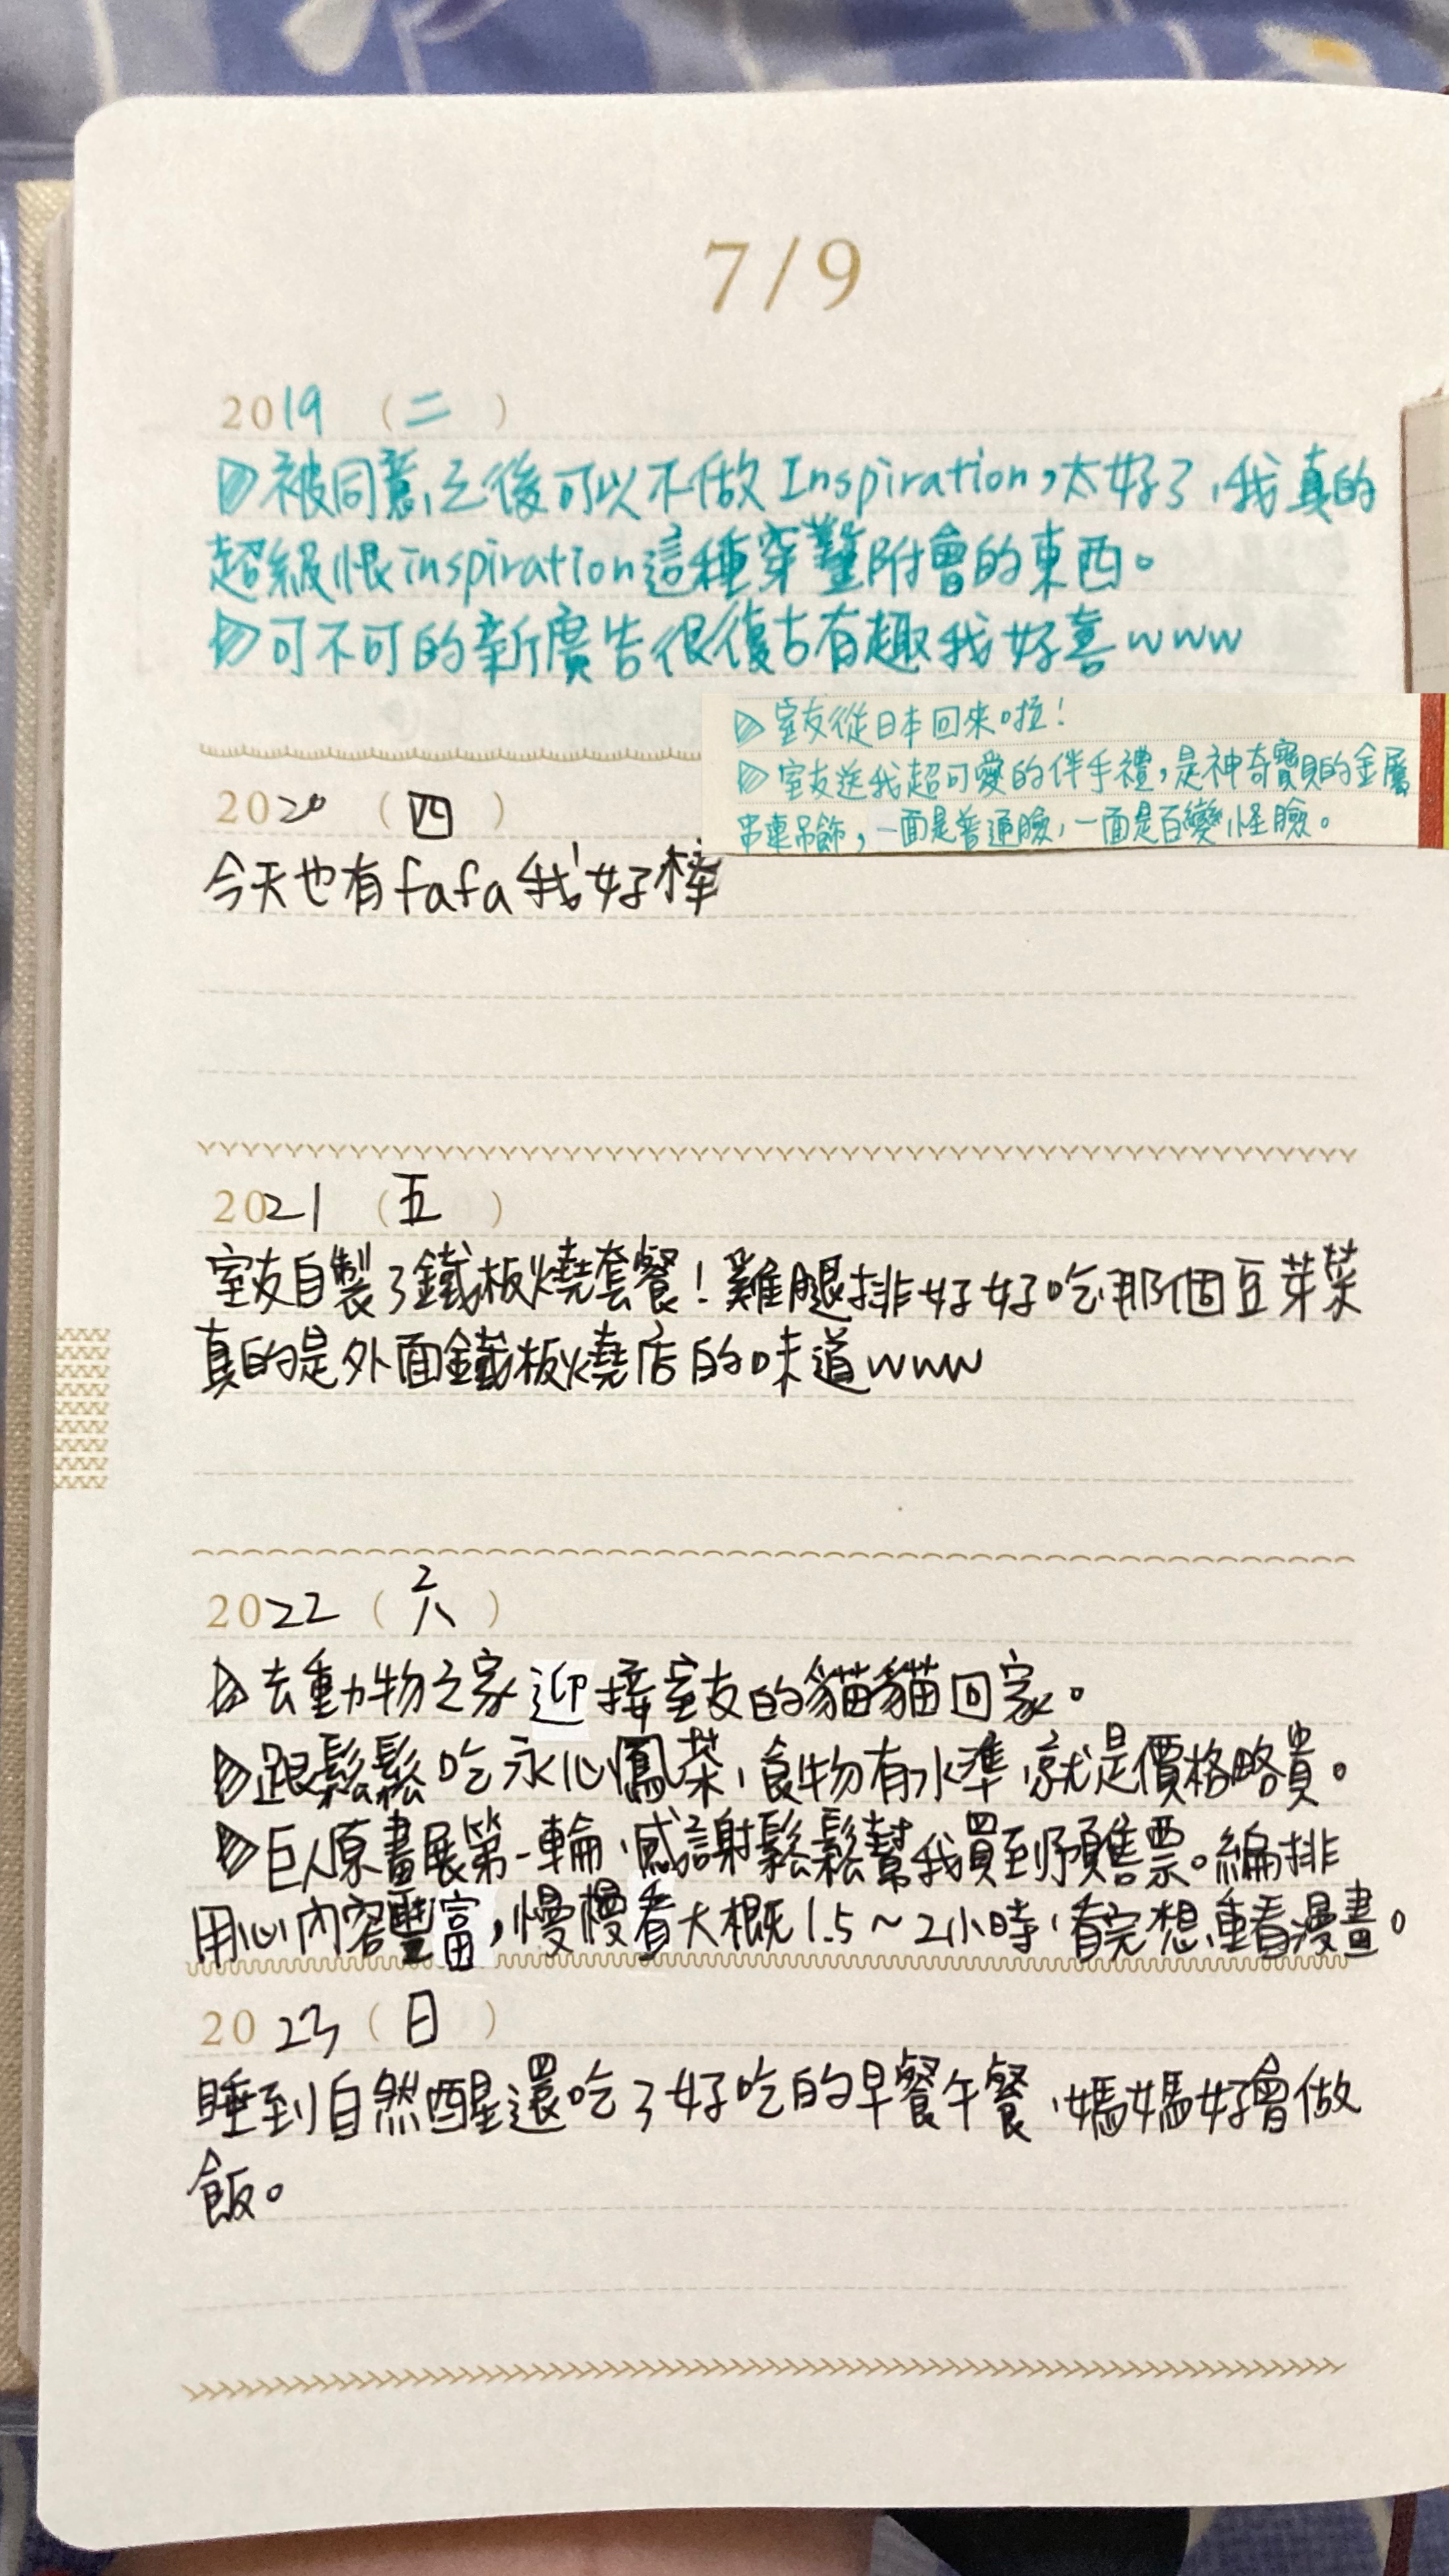 7/9
2019 (二)
被同意之後可以不做Inspiration,太好了,我真的
超級恨inspiration這種穿鑿附會的東西。
可不可的新廣告很復古有趣我好喜www
室友從日本回來啦!
室友送我超可愛的伴手禮,是神奇寶貝的金屬
串車吊飾,一面是普通臉,一面是百變怪臉。
2020 (四)
今天也有fafa我好棒
2021 (五)
室友自製了鐵板燒套餐!雞腿排好好吃,那個豆芽菜
真的是外面鐵板燒店的味道www
2022 (六)
去動物之家迎接室友的貓貓回家。
跟鬆鬆吃永心鳳茶,食物有水準,就是價格略貴。
巨人原畫展第一輪,感謝鬆鬆幫我買到預售票。編排
用心內容豐富,慢慢看大概1.5~2小時,看完想重看漫畫。
2023 (日)
睡到自然醒還吃了好吃的早餐午餐,媽媽好會做
飯。